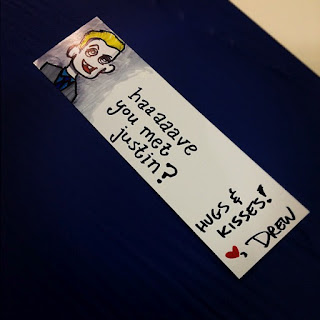 haaaaave
you met
justin?
HUGS &
KISSES!
♥, DREW